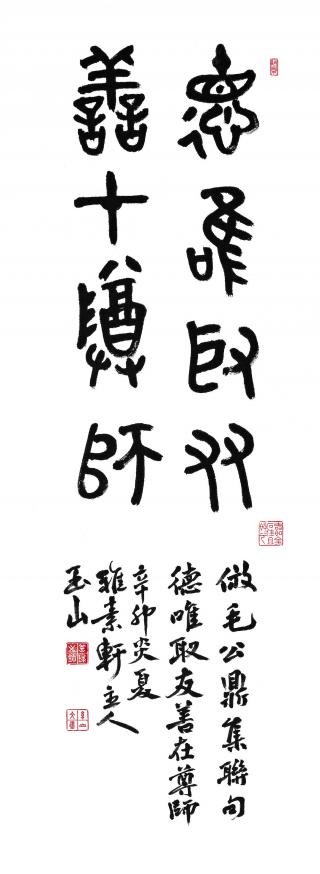 德唯取友
善在尊師
倣毛公鼎集聯句
德唯取友善在尊師
辛卯炎夏
雅素軒主人
玉山